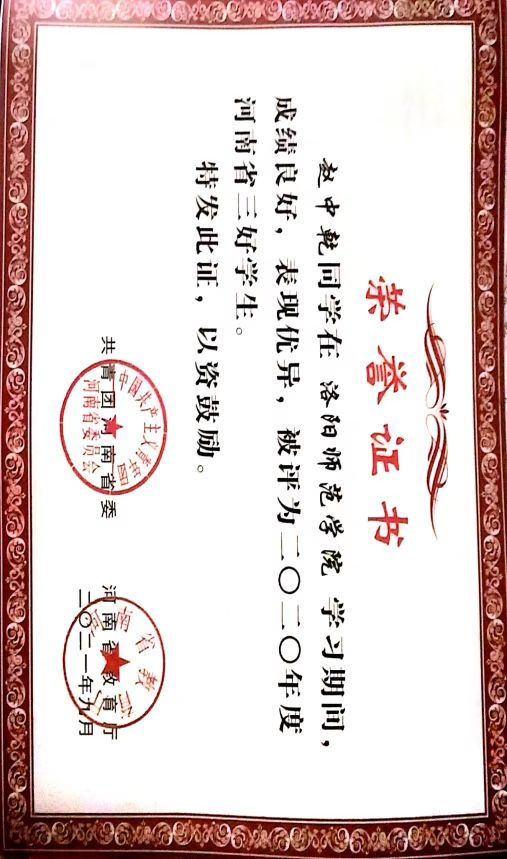 荣誉证书
赵中乾同学在 洛阳师范学院 学习期间，
成绩良好，表现优异，被评为二〇二〇年度
河南省三好学生。
特发此证，以资鼓励。
共青团河南省委
河南省教育厅
二〇二一年九月
中国共产主义青年团
河南省委员会
河南省教育厅